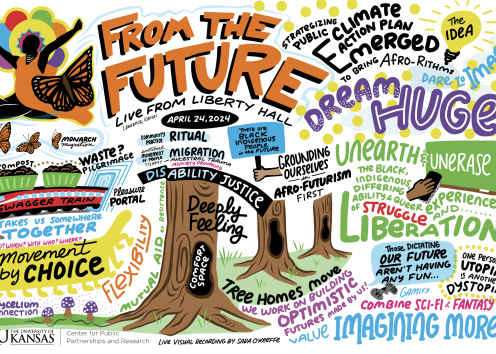 FROM THE
FUTURE
LIVE FROM LIBERTY HALL
Lawrence, Kansas
APRIL 24, 2024
STRATEGIZING
PUBLIC
CLIMATE
ACTION PLAN
EMERGED
TO BRING AFRO-RITHMS
The
IDEA
DARE to IMA
DREAM
HUGE
MONARCH
migration
COMPOST
WASTE?
PILGRIMAGE
SWAGGER TRAIN
TAKES US SOMEWHERE
TOGETHER
WHEN? WITH WHO? WHERE?
Movement
by CHOICE
MYCELIUM
CONNECTION
Pleasure
PORTAL
FLEXIBILITY
MUTUAL AID
COMMUNITY
PRACTICE
RITUAL
MIGRATION
ANCESTRAL TRAUMA
DISABILITY JUSTICE
Deeply
Feeling
COMPOST
SPACE
There are
BLACK
INDIGENOUS
PEOPLE
in the FUTURE
GROUNDING
OURSELVES
in
AFRO-FUTURISM
FIRST
Tree Homes move
WE WORK ON BUILDING
OPTIMISTIC
FUTURES MADE BY US
VALUE IMAGINING MORE
UNEARTH and UNERASE
THE BLACK,
INDIGENOUS
DIFFERING
ABILITY & QUEER
EXPERIENCE
of STRUGGLE AND
LIBERATION
Those DICTATING
OUR FUTURE
AREN'T HAVING
ANY FUN...
ONE PERSON
UTOPIA
IS ANOTHER
DYSTOPIA
GAMIFY
COMBINE SCI-FI & FANTASY
LIVE VISUAL RECORDING BY SARA O'KEEFFE
THE UNIVERSITY OF
KANSAS
Center for Public
Partnerships and Research